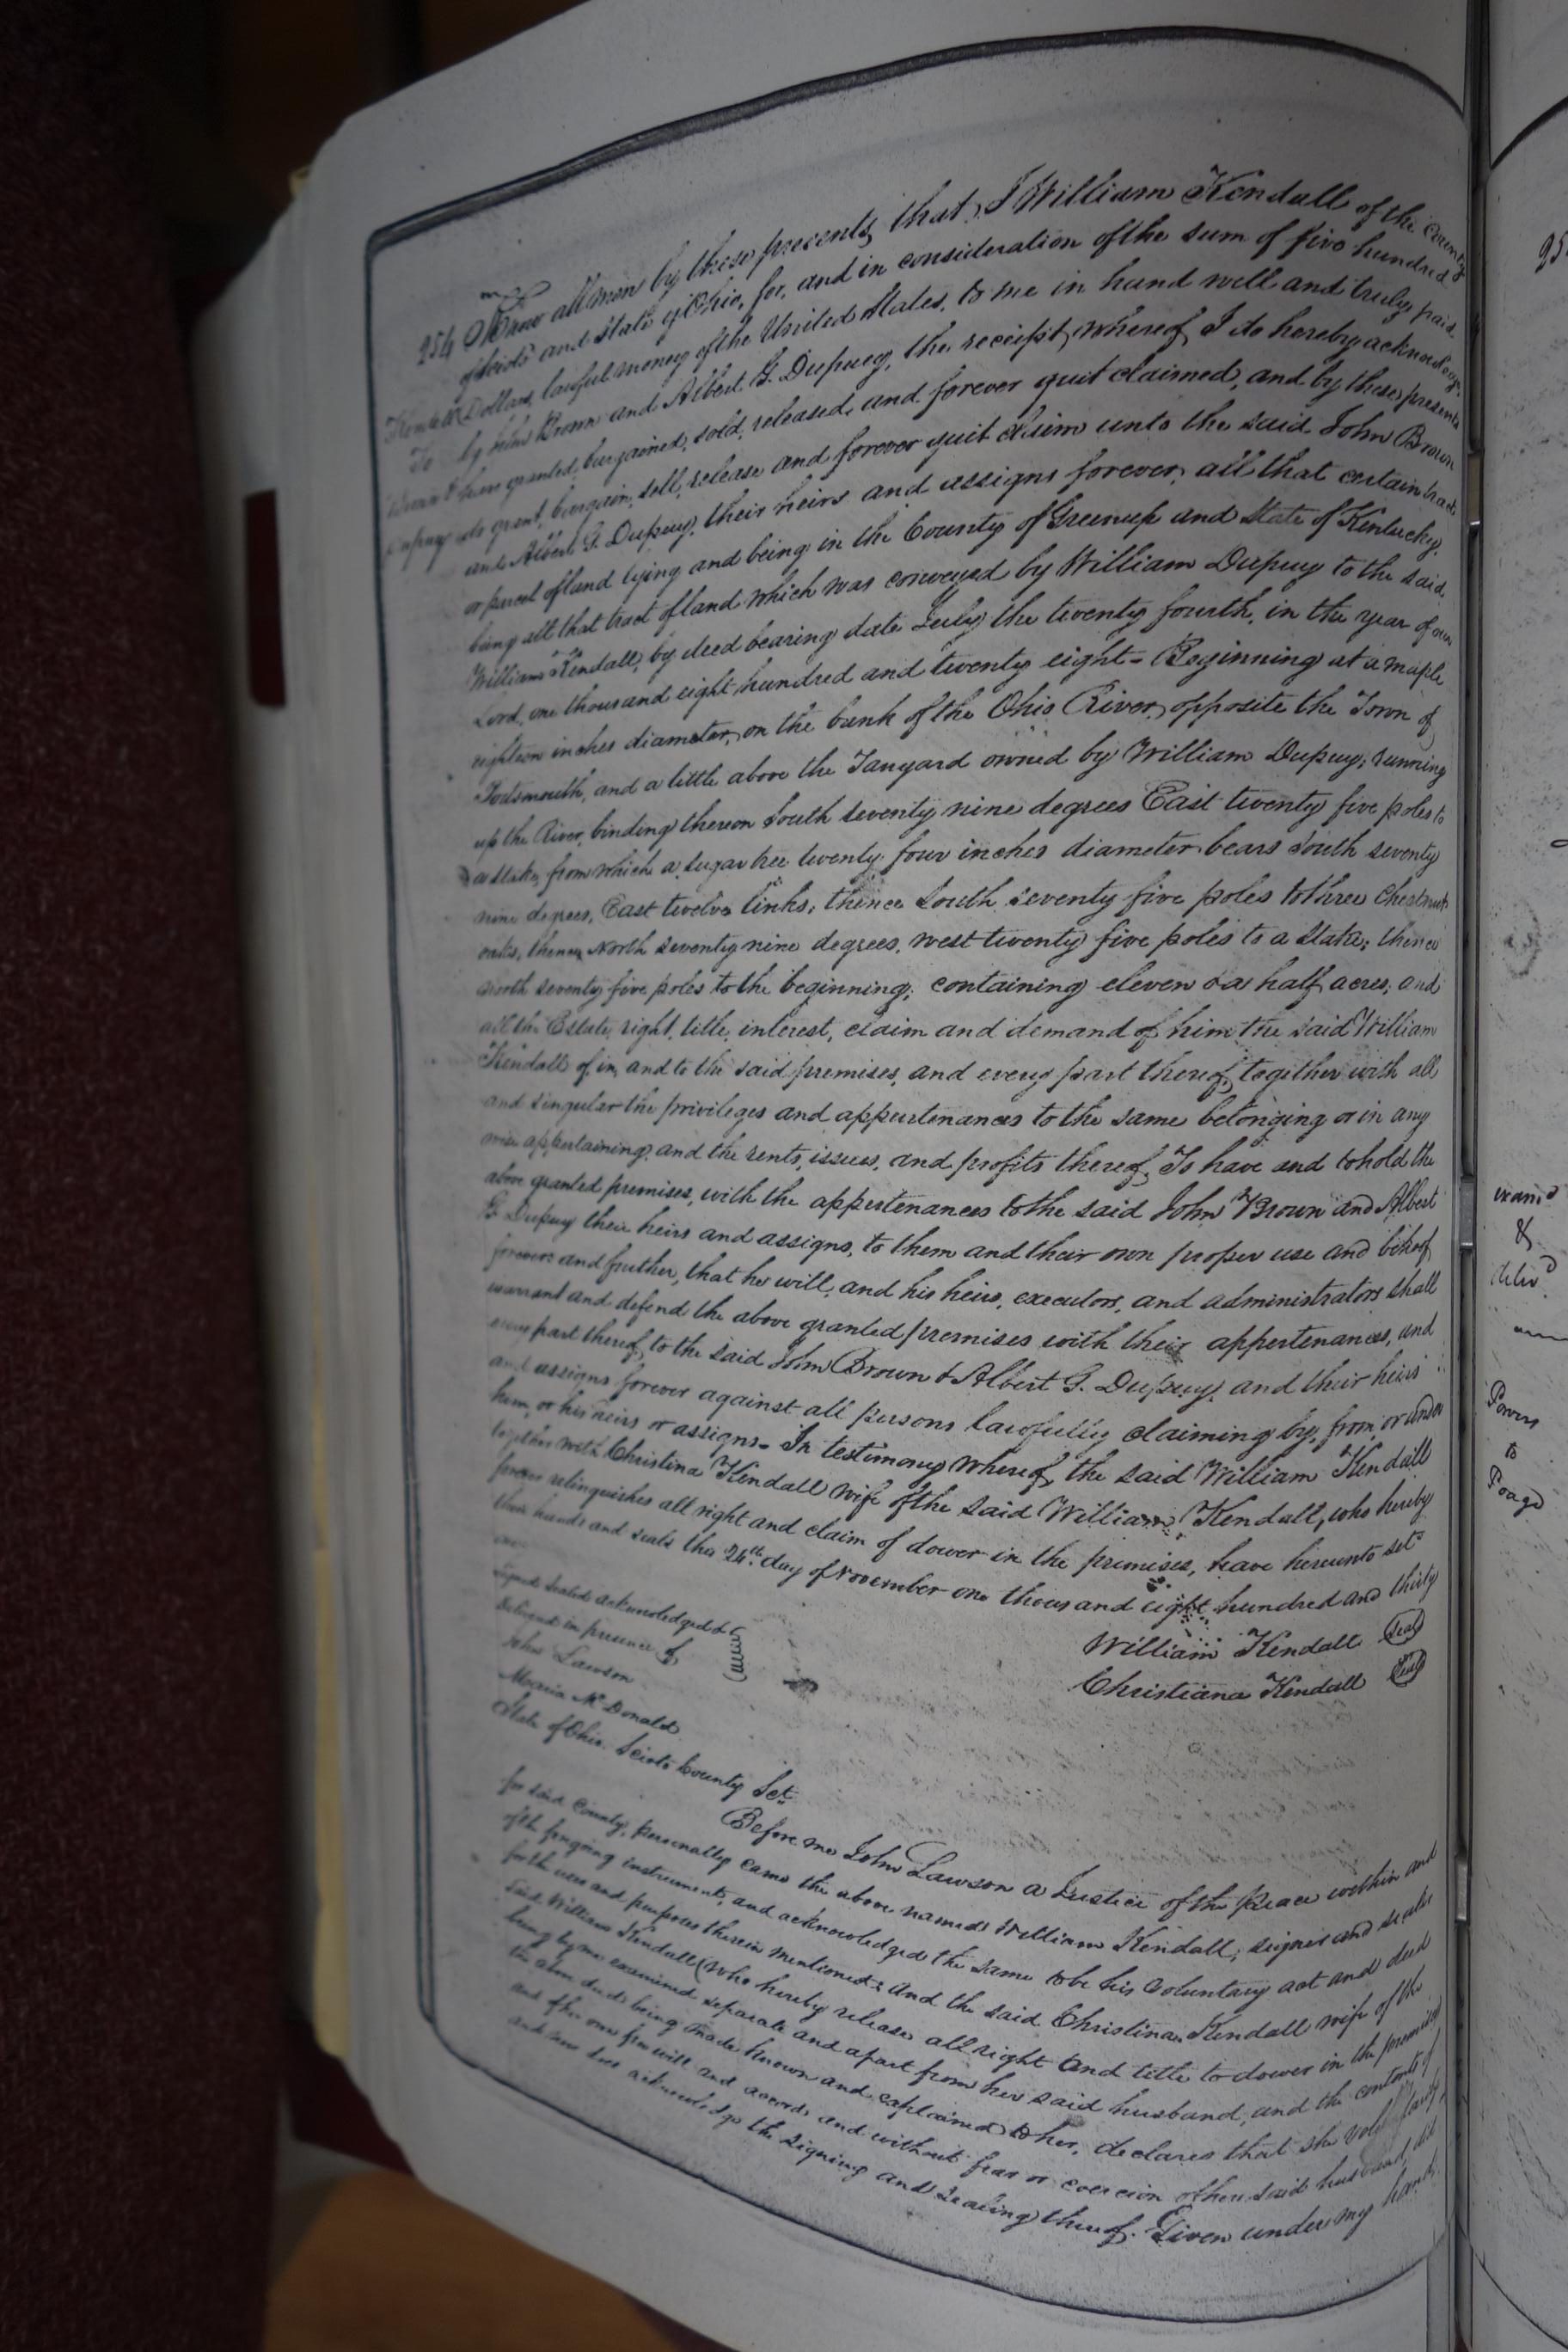 254 Know all men by these presents, that, I William Kendall of the County
of Scioto and State of Ohio, for, and in consideration of the sum of five hundred
Kendall Dollars, lawful money of the United States, to me in hand well and truly paid
To by John Brown and Albert G. Dupuey, the receipt whereof, I do hereby acknowledge
have granted, bargained, sold, released, and forever quit claimed, and by these presents
do grant, bargain, sell, release and forever quit claim unto the said John Brown
and Albert G. Dupuy, their heirs and assigns forever, all that certain tract
or parcel of land lying and being in the County of Greenup and State of Kentucky,
being all that tract of land which was conveyed by William Dupuy to the said
William Kendall, by deed bearing date July the twenty fourth, in the year of our
Lord, one thousand eight hundred and twenty eight - Beginning at a maple
eighteen inches diameter, on the bank of the Ohio River, opposite the Town of
Portsmouth, and a little above the Tanyard owned by William Dupuy; running
up the River, binding thereon South seventy nine degrees East twenty five poles to
a stake, from which a sugar tree twenty four inches diameter bears South seventy
nine degrees, East twelve links; thence South seventy five poles to three Chestnut
oaks, thence North seventy nine degrees, west twenty five poles to a stake; thence
north seventy five poles to the beginning; containing eleven & a half acres; and
all the Estate, right, title, interest, claim and demand of him the said William
Kendall of, in, and to the said premises, and every part thereof, together with all
and singular the privileges and appurtenances to the same belonging or in any
wise appertaining, and the rents, issues, and profits thereof, To have and to hold the
above granted premises, with the appertenances to the said John Brown and Albert
G. Dupuy their heirs and assigns, to them and their own proper use and behoof
forever and further, that he will, and his heirs, executors, and administrators shall
warrant and defend the above granted premises with their appertenances, and
every part thereof, to the said John Brown & Albert G. Dupuy, and their heirs
and assigns forever against all persons lawfully claiming by, from, or under
him, or his heirs or assigns. In testimony whereof, the said William Kendall
together with Christina Kendall wife of the said William Kendall, who hereby
forever relinquishes all right and claim of dower in the premises, have hereunto set
their hands and seals this 24th day of November one thousand eight hundred and thirty
Signed Sealed acknowledged &
delivered in presence of
William Kendall Seal
John Lawson
Christiana Kendall Seal
Maria McDonald
State of Ohio. Scioto County Sct.
Before me John Lawson a Justice of the Peace within and
for said County, personally came the above named William Kendall; signer and sealer
of the foregoing instrument, and acknowledged the same to be his voluntary act and deed
for the uses and purposes therein mentioned; and the said Christina Kendall wife of the
said William Kendall (who hereby release all right and title to dower in the premises)
being by me examined separate and apart from her said husband, and the contents of
the above deed being made known and explained to her, declares that she voluntarily,
and of her own free will and accord, and without fear or coercion of her said husband, did
and now does acknowledge the signing and sealing thereof. Given under my hand
exam'd
&
deliv'd
Powers
to
Poage